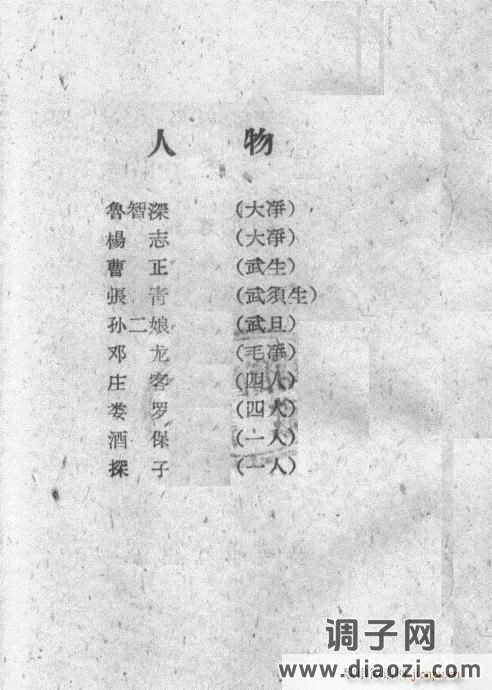 人 物
魯智深 (大淨)
楊 志 (大淨)
曹 正 (武生)
張 青 (武須生)
孙二娘 (武旦)
邓 龙 (毛淨)
庄 客 (四人)
娄 罗 (四人)
酒 保 (一人)
探 子 (一人)
调子网
www.diaozi.com